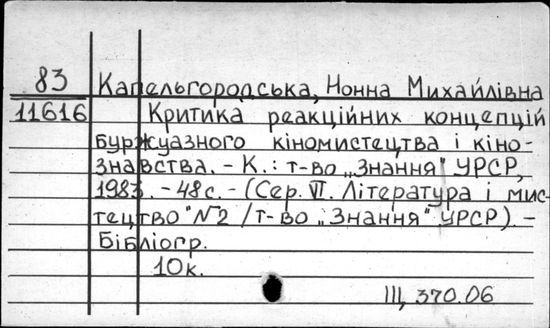 83 Капельгородська, Нонна Михайлівна
11616 Критика реакційних концепцій
буржуазного кіномистецтва і кіно-
знавства. - К.: т-во „Знання" УРСР,
1983. - 48 с. - (Сер. VI. Література і мис-
тецтво" №2 / т-во „Знання" УРСР). -
Бібліогр.
10к.
Ш, 370.06